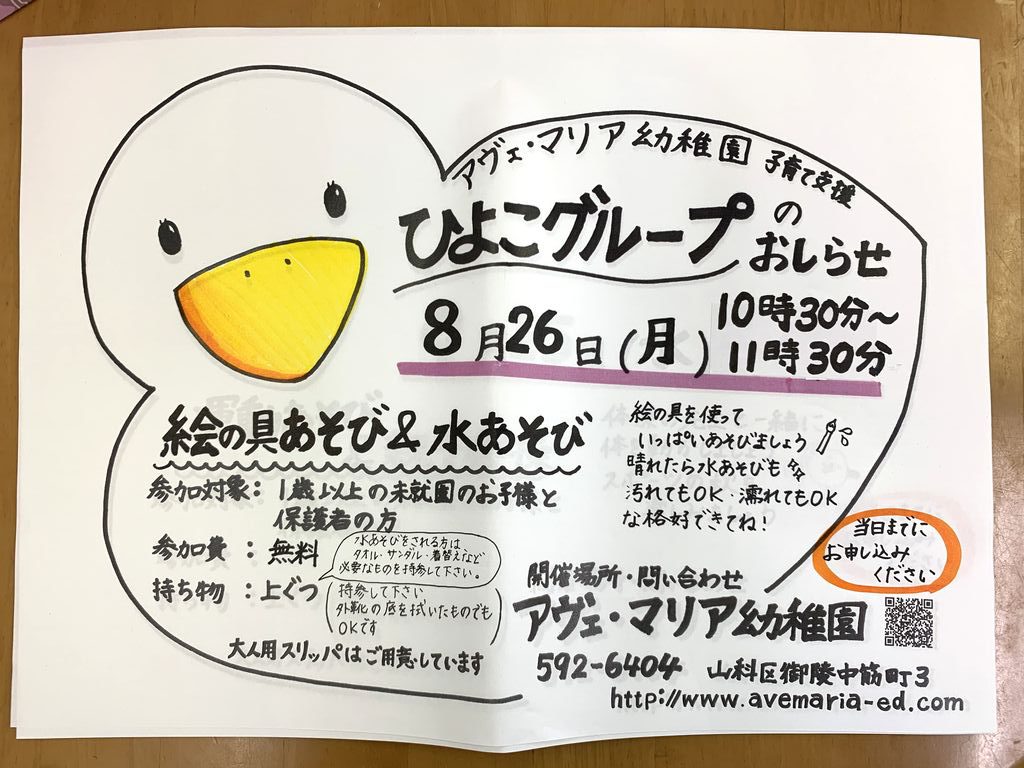 アヴェ・マリア幼稚園 子育て支援
ひよこグループの
おしらせ
8月26日(月)
10時30分～
11時30分
絵の具あそび&水あそび
絵の具を使って
いっぱいあそびましょう
晴れたら水あそびも
汚れてもOK・濡れてもOK
な格好できてね!
参加対象:1歳以上の未就園のお子様と
保護者の方
参加費:無料
水あそびをされる方は
タオル・サンダル・着替えなど
必要なものを持参して下さい。
持ち物:上ぐつ
持参して下さい
外靴の底を拭いたものでも
OKです
大人用スリッパはご用意しています
当日までに
お申し込み
ください
開催場所・問い合わせ
アヴェ・マリア幼稚園
592-6404 山科区御陵中筋町3
http://www.avemaria-ed.com